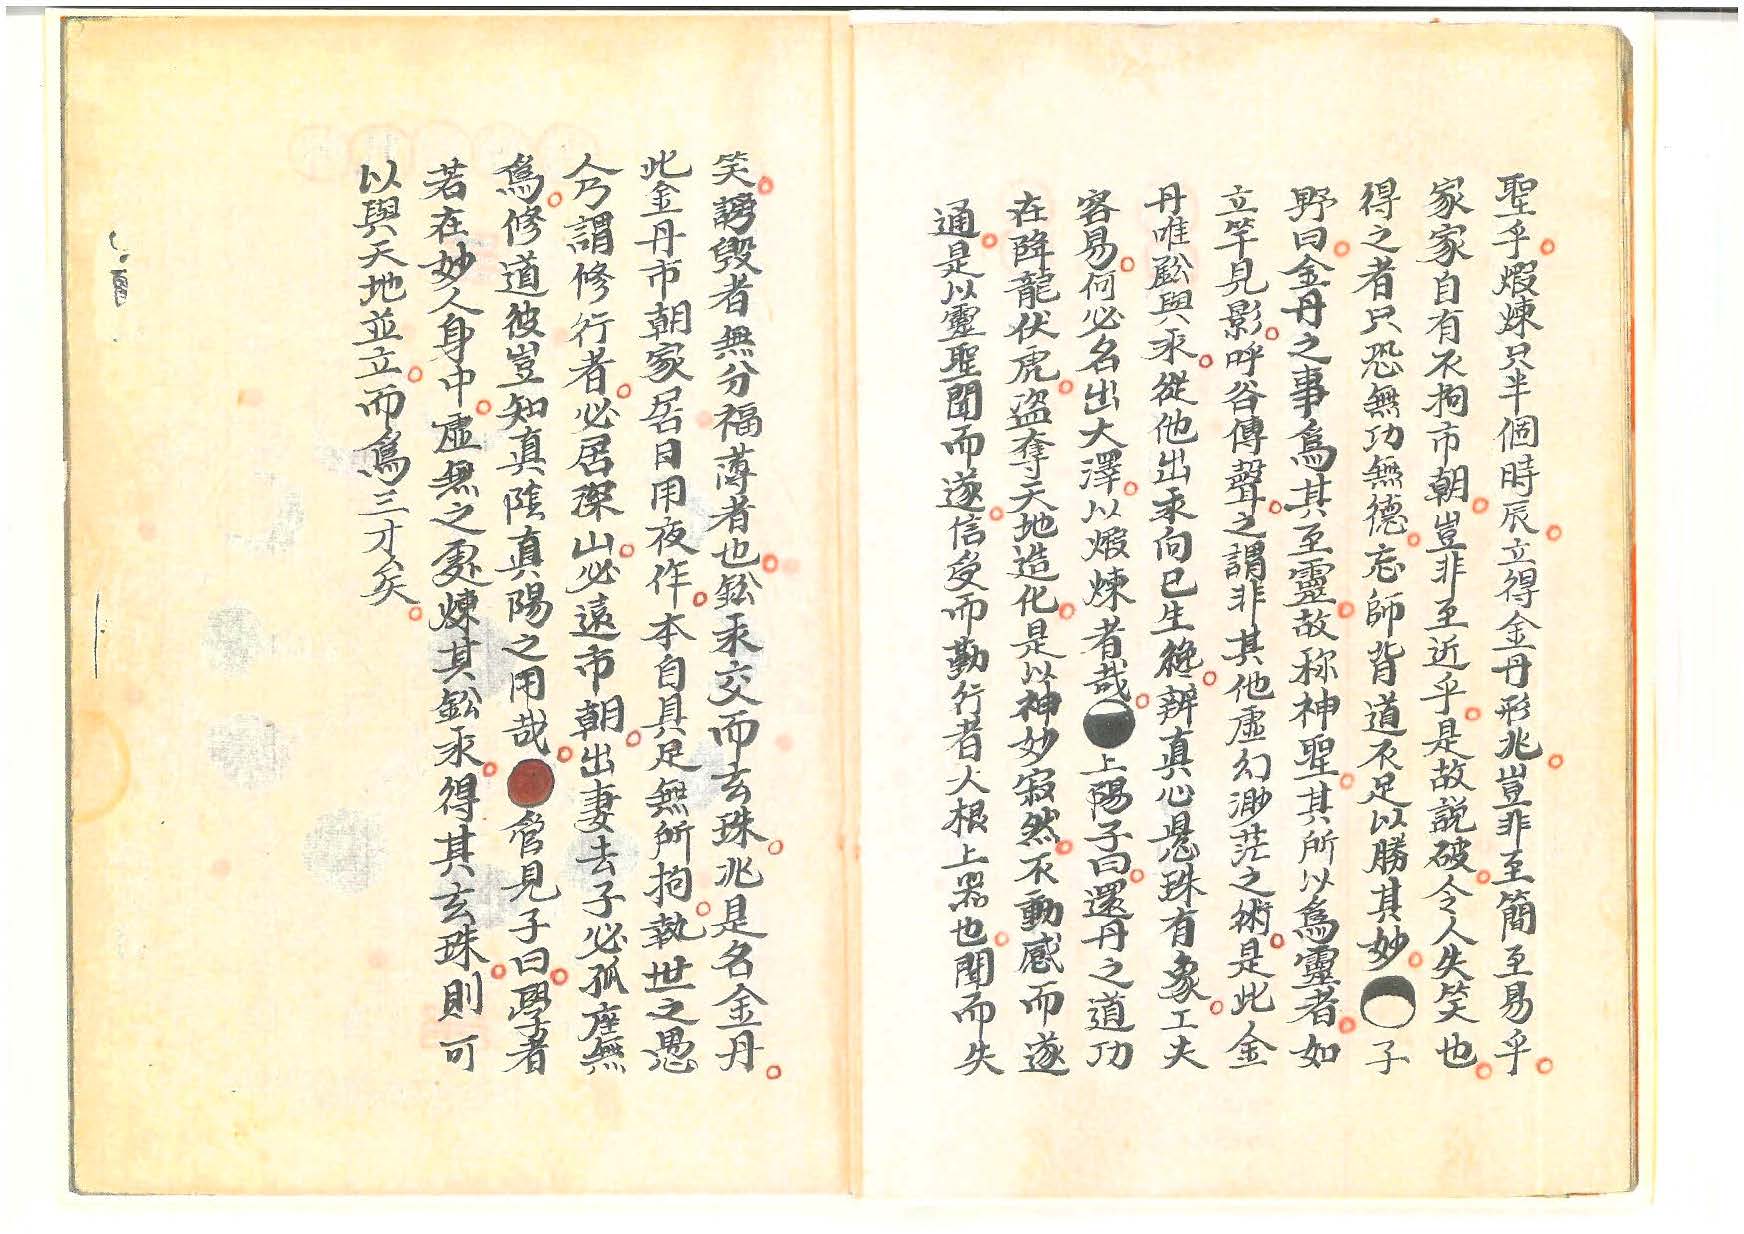 聖乎。煆煉只半個時辰。立得金丹形兆。豈非至簡至易乎。
家家自有不拘市朝。豈非至近乎。是故説破。令人失笑也。
得之者只恐無功無德。忘師背道不足以勝其妙。子
野曰。金丹之事爲其至靈。故称神聖。其所以爲靈者。如
立竿見影。呼谷傳聲。之謂非其他虛幻渺茫之術。是此金
丹唯鈆與汞。從他出汞向已生。䋲辨真心。懸珠有象。工夫
容易。何必名出大澤。以煆煉者哉。上陽子曰。還丹之道功
在降龍伏虎。盜奪天地造化。是以神妙寂然。不動感而遂
通。是以靈聖聞而遂。信受而勤行者大根上器也。聞而失
笑。謗毁者無分福薄者也。鈆汞交而玄珠。兆是名金丹。
此金丹市朝家居日用夜作。本自具足無所拘。執世之愚
人乃謂修行者。必居深山。必遠市朝。出妻去子必孤座無
爲。修道彼豈知真陰真陽之用哉。管見子曰。學者
若在妙人身中。虛無之䖏煉其鈆汞。得其玄珠。則可
以與天地並立。而爲三才矣。